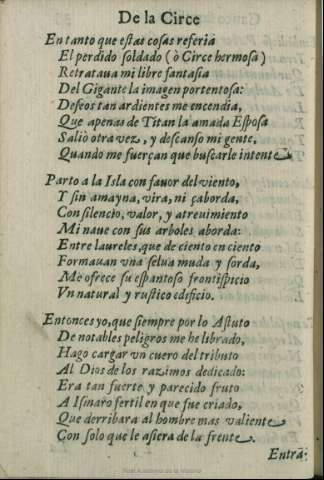 De la Circe
En tanto que estas cosas referia
El perdido soldado (ò Circe hermosa)
Retrataua mi libre fantasia
Del Gigante la imagen portentosa:
Deseos tan ardientes me encendia,
Que apenas de Titan la amada Esposa
Saliò otra vez, y descansò mi gente,
Quando me fuerçan que buscarle intente
Parto a la Isla con fauor del viento,
Y sin amayna, vira, ni çaborda,
Con silencio, valor, y atreuimiento
Mi naue con sus arboles aborda:
Entre laureles, que de ciento en ciento
Formauan vna selua muda y sorda,
Me ofrece su espantoso frontispicio
Vn natural y rustico edificio.
Entonces yo, que siempre por lo Astuto
De notables peligros me he librado,
Hago cargar vn cuero del tributo
Al Dios de los razimos dedicado:
Era tan fuerte y parecido fruto
A Ismaro fertil en que fue criado,
Que derribara al hombre mas valiente
Con solo que le asiera de la frente.
Entrà-
Real Academia de la Historia